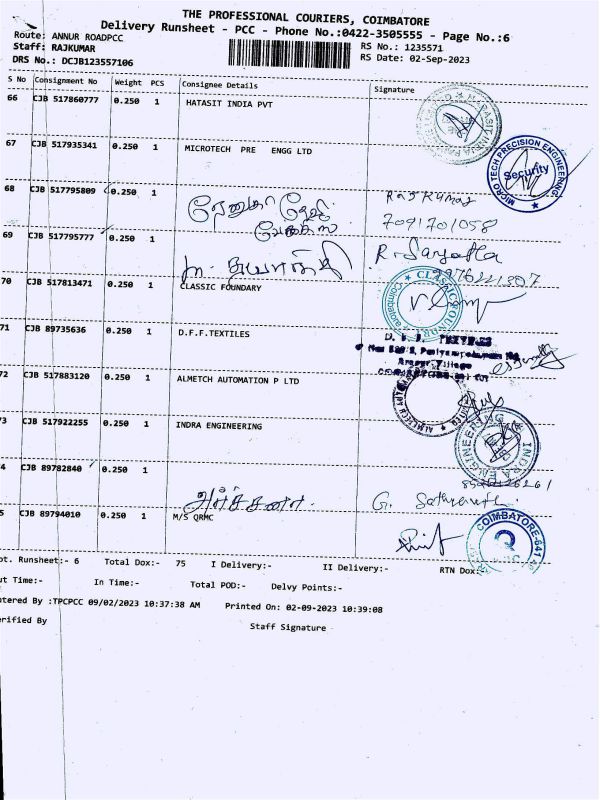 THE PROFESSIONAL COURIERS, COIMBATORE
Delivery Runsheet - PCC - Phone No.:0422-3505555 - Page No.:6
Route: ANNUR ROADPCC
RS No.: 1235571
Staff: RAJKUMAR
RS Date: 02-Sep-2023
DRS No.: DCJB123557106
S No Consignment No Weight PCS Consignee Details Signature
66 CJB 517860777 0.250 1 HATASIT INDIA PVT
67 CJB 517935341 0.250 1 MICROTECH PRE ENGG LTD
MICRO TECH PRECISION ENGINEERING
Security
68 CJB 517795809 0.250 1
Raj Kumar
7091701058
69 CJB 517795777 0.250 1
70 CJB 517813471 0.250 1 CLASSIC FOUNDARY
71 CJB 89735636 0.250 1 D.F.F.TEXTILES
72 CJB 517883120 0.250 1 ALMETCH AUTOMATION P LTD
3 CJB 517922255 0.250 1 INDRA ENGINEERING
4 CJB 89782840 0.250 1
அர்ச்சனை
5 CJB 89794010 0.250 1 M/S QRMC
COIMBATORE-641
Q
ot. Runsheet:- 6 Total Dox:- 75 I Delivery:- II Delivery:- RTN Dox:
ut Time:- In Time:- Total POD:- Delvy Points:-
tered By :TPCPCC 09/02/2023 10:37:38 AM Printed On: 02-09-2023 10:39:08
erified By
Staff Signature